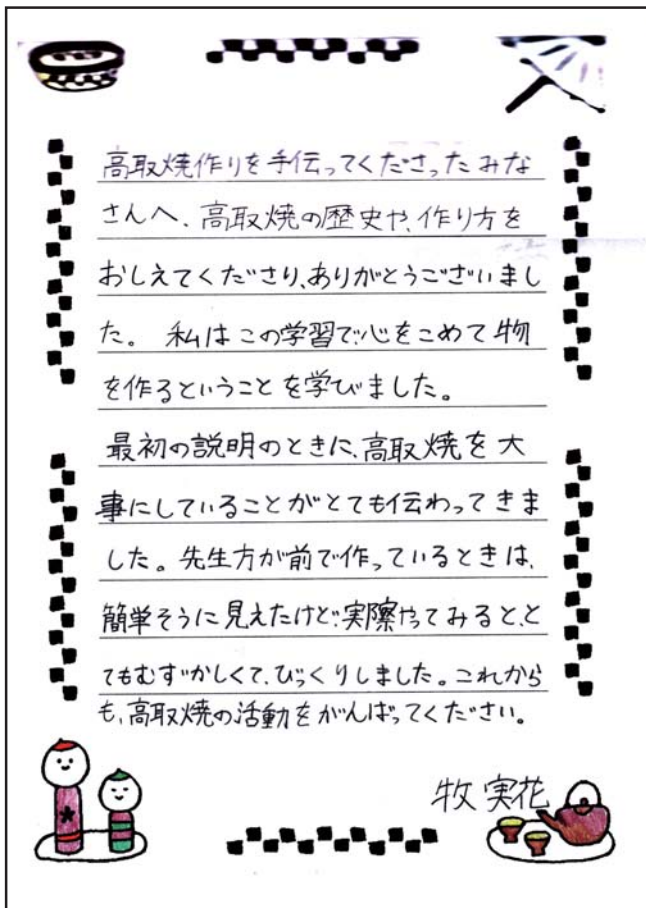 高取焼作りを手伝ってくださったみな
さんへ、高取焼の歴史や、作り方を
おしえてくださり、ありがとうございまし
た。 私はこの学習で、心をこめて物
を作るということを学びました。
最初の説明のときに、高取焼を大
事にしていることがとても伝わってきま
した。先生方が前で作っているときは、
簡単そうに見えたけど、実際やってみると、と
てもむずかしくて、びっくりしました。これから
も、高取焼の活動をがんばってください。
牧 実花